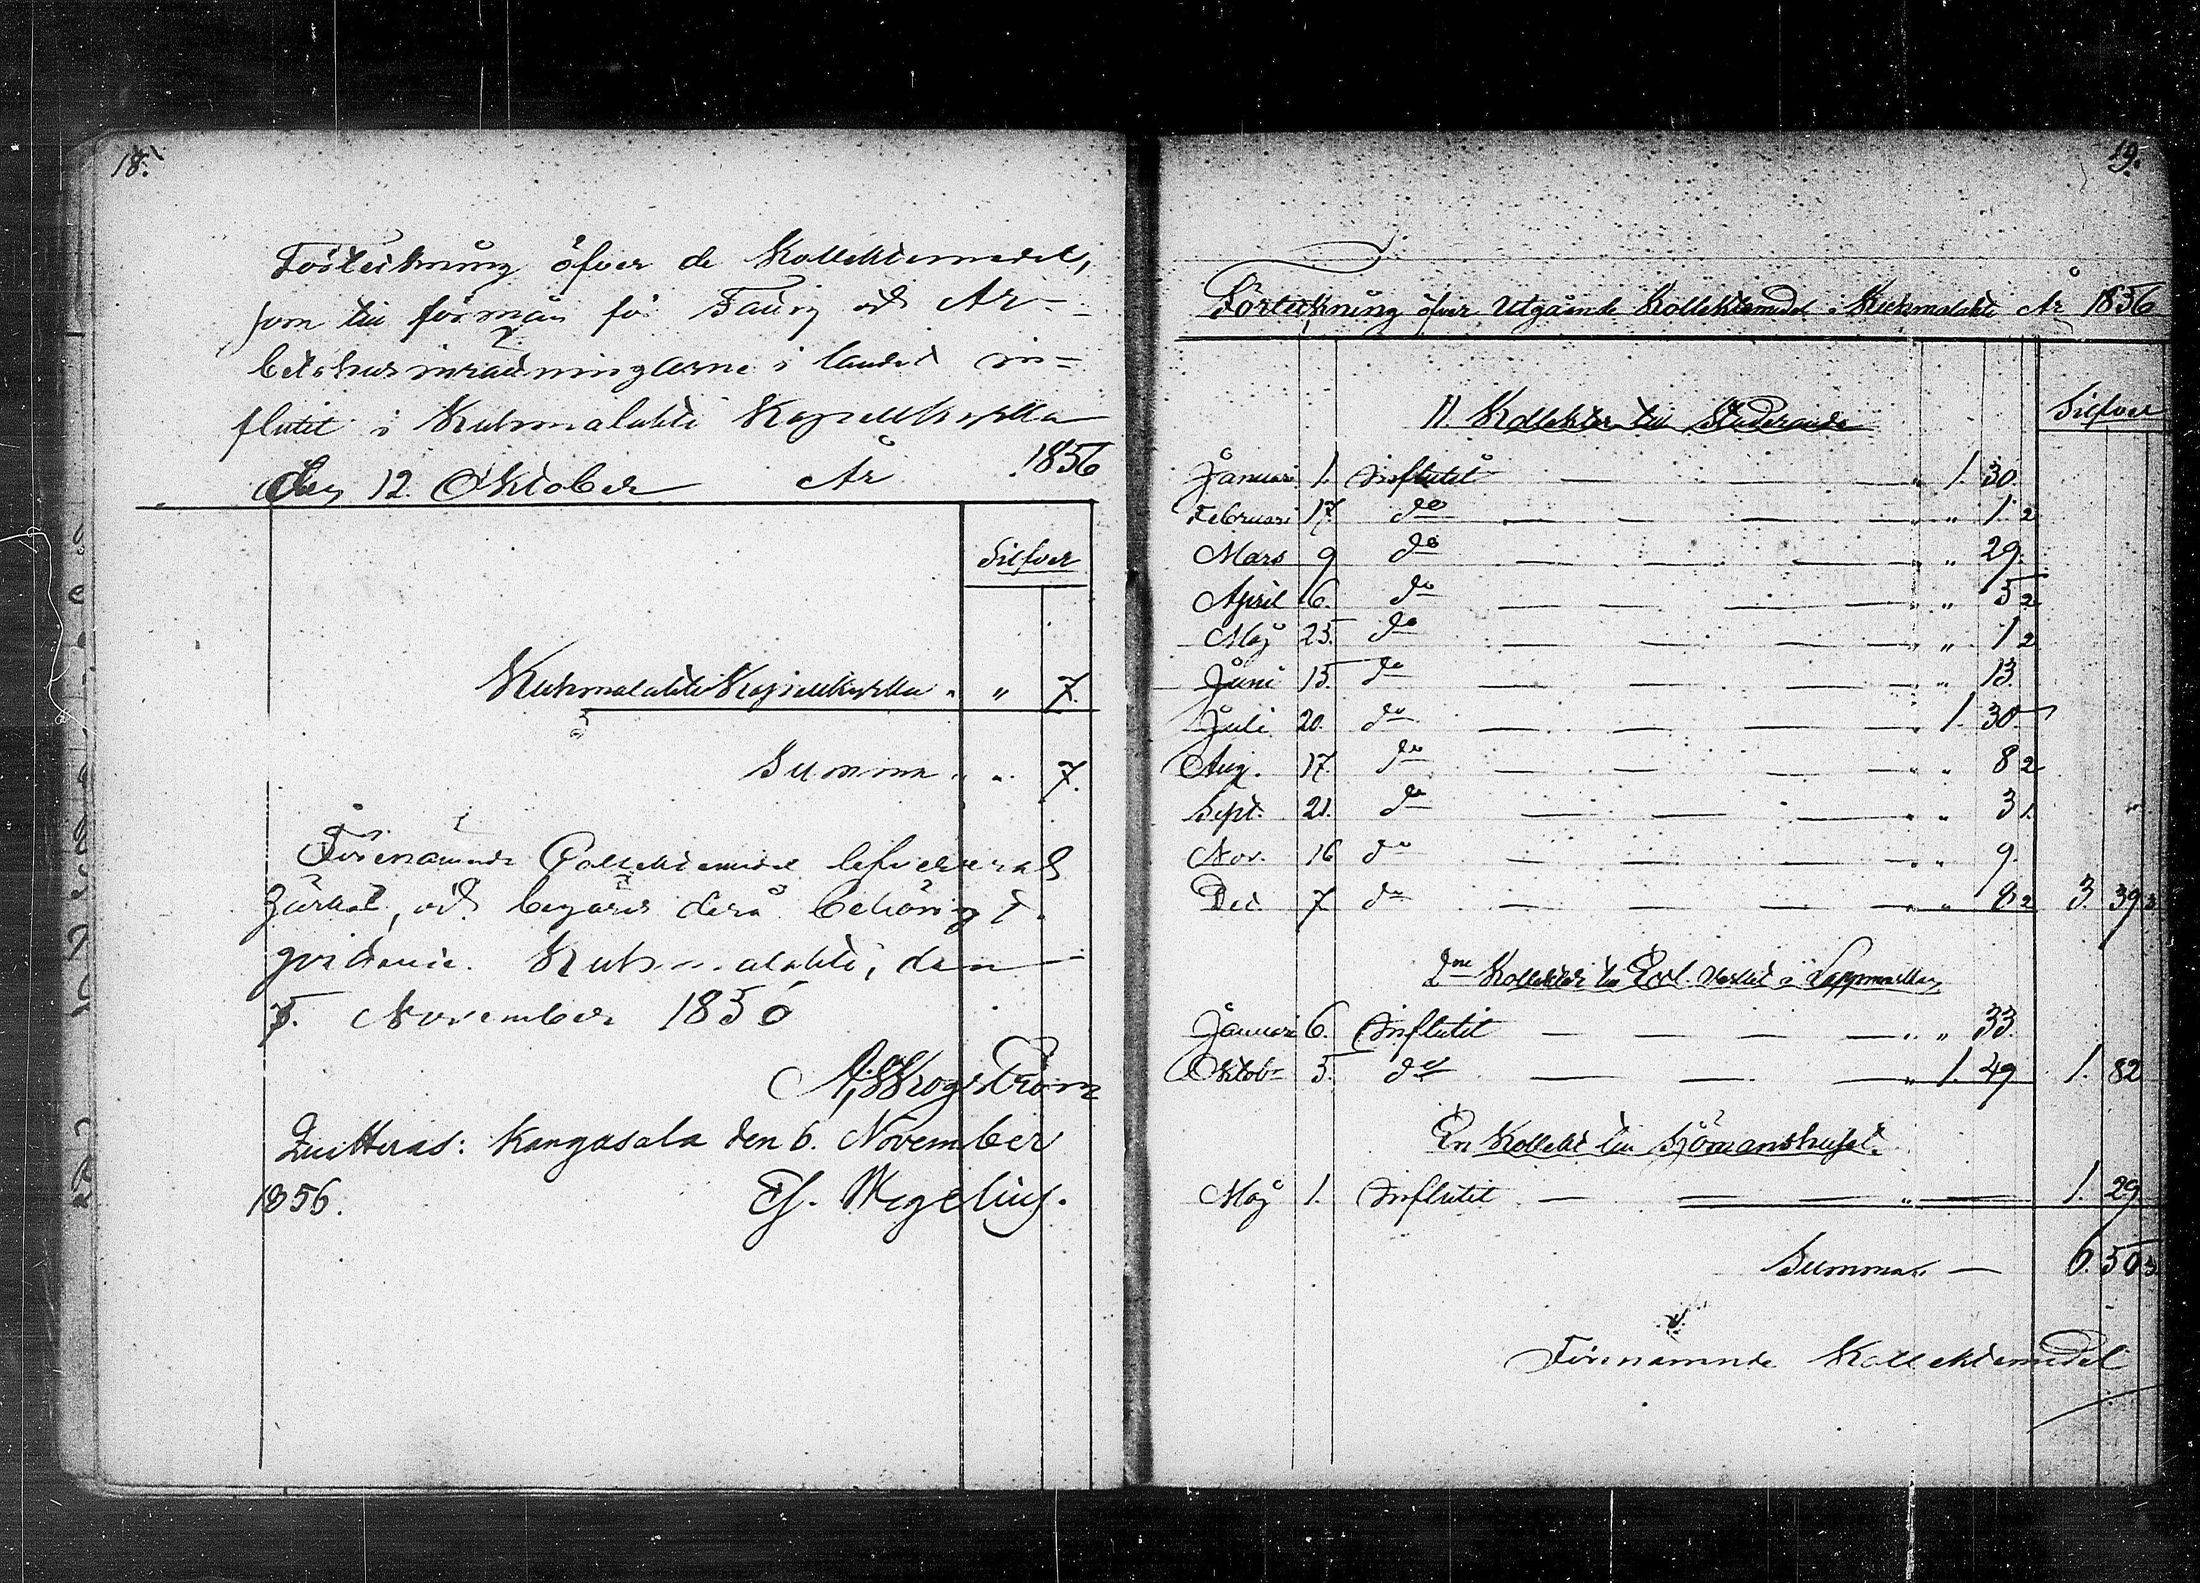 18.
Förteckning öfver de Kollektemedel,
som till förmån för Fattig och Ar-
betshusinrättningarne i landet in=
flutit i Kuhmalahti Kapellkyrka
den 12 Oktober År 1856
Silfver
Kuhmalahti Kapellkyrka . " 7.
Summa . " 7.
Förenämnde Collektemedel lefvereras
härhos, och begäres derå behörigt
qvittence. Kuhmalahti, den
5. November 1856
A. Skogström
Quitteras: Kangasala den 6. November
1856. Wegelius.
19.
Förteckning öfver Utgående Kollektemedel i Kuhmalahti År 1856
11. Kollekter till Studerande
Silfver
Januari 1. Influtit — — — — " 1. 30.
Februari 17. do — — — — " " 1. 2
Mars 9 do — — — — " " 29.
April 6. do — — — — " " 5 2
Maj 25. do — — — — " " 1 2
Juni 15. do — — — — " " 13.
Juli 20. do — — — — " 1. 30.
Aug. 17. do — — — — " " 8 2
Sept. 21. do — — — — " " 3 1.
Nov. 16 do — — — — " " 9.
Dec. 7 do — — — — " " 8 2 3. 39 3
2ne Kollekter till Evl. verket i Lappmarken
Januari 6. Influtit — — — — " " 33.
Oktobr 5. do — — — " 1. 49 1. 82
En Kollekt till Sjömanshuset.
Maj 1. Influtit — — — — " — 1. 29
Summa — 6. 50 3
Förenämnde Kollektemedel